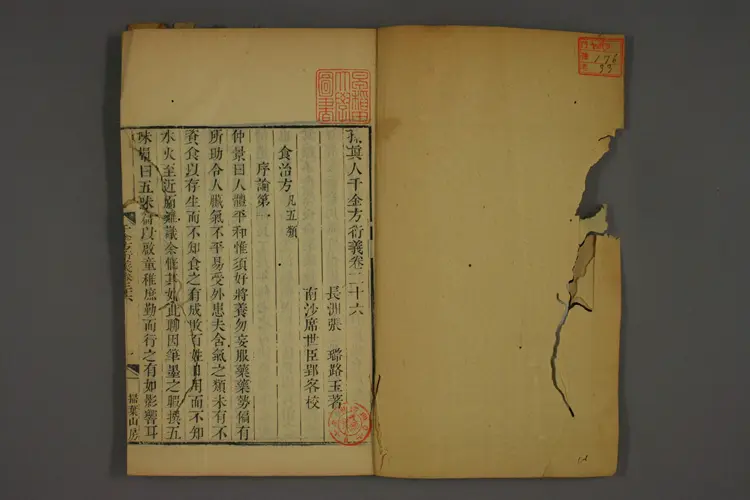 孫真人千金方衍義卷二十六
長洲張璐路玉著
南沙席世臣郢客校
食治方凡五類
序論第一
仲景曰人體平和惟須好將養勿妄服藥藥勢偏有
所助令人臟氣不平易受外患夫含氣之類未有不
資食以存生而不知食之有成敗百姓日用而不知
水火至近而難識余慨其如此聊因筆墨之暇撰五
味損益食治篇以啟童稚庶勤而行之有如影響耳
千金方衍義卷二十六
一
掃葉山房
176
33